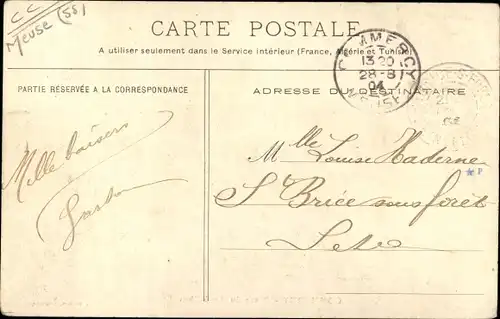 CC
Meuse (55)
CARTE POSTALE
A utiliser seulement dans le Service intérieur (France, Algérie et Tunisie)
PARTIE RÉSERVÉE A LA CORRESPONDANCE
ADRESSE DU DESTINATAIRE
COMMERCY
13 20
28-8
04
MEUSE
Mille baisers
Gaston
Mlle Louise Haderne
St Brice sous forêt